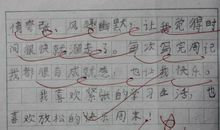 慢音乐，风趣幽默；让我觉得时
间很快就溜走了。再次写完周记
我都很有成就感，也让我快乐。
我喜欢紧张的学习生活，也
喜欢放松的快乐周末。